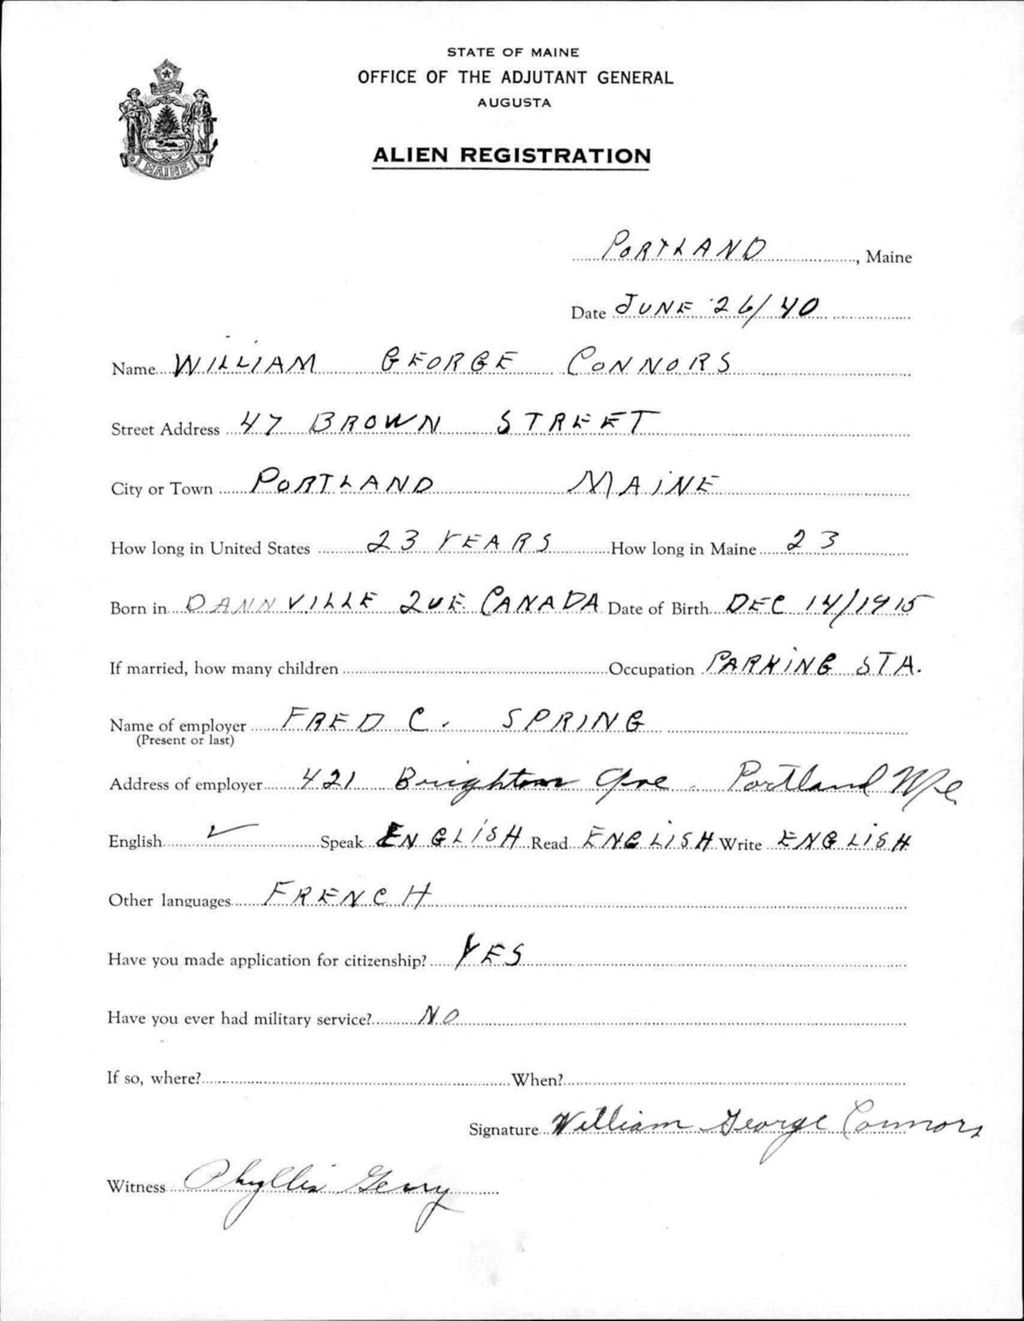 STATE OF MAINE
OFFICE OF THE ADJUTANT GENERAL
AUGUSTA
ALIEN REGISTRATION
MAINE
PORTLAND, Maine
Date JUNE 26/40
Name WILLIAM GEORGE CONNORS
Street Address 47 BROWN STREET
City or Town PORTLAND MAINE
How long in United States 23 YEARS How long in Maine 23
Born in DANNVILLE QUE. CANADA Date of Birth DEC 14/1915
If married, how many children Occupation PARKING STA.
Name of employer FRED C. SPRING
(Present or last)
Address of employer 421 Brighton Ave. Portland Me
English ✓ Speak ENGLISH Read ENGLISH Write ENGLISH
Other languages FRENCH
Have you made application for citizenship? YES
Have you ever had military service? NO
If so, where? When?
Signature William George Connors
Witness Phyllis Gerry